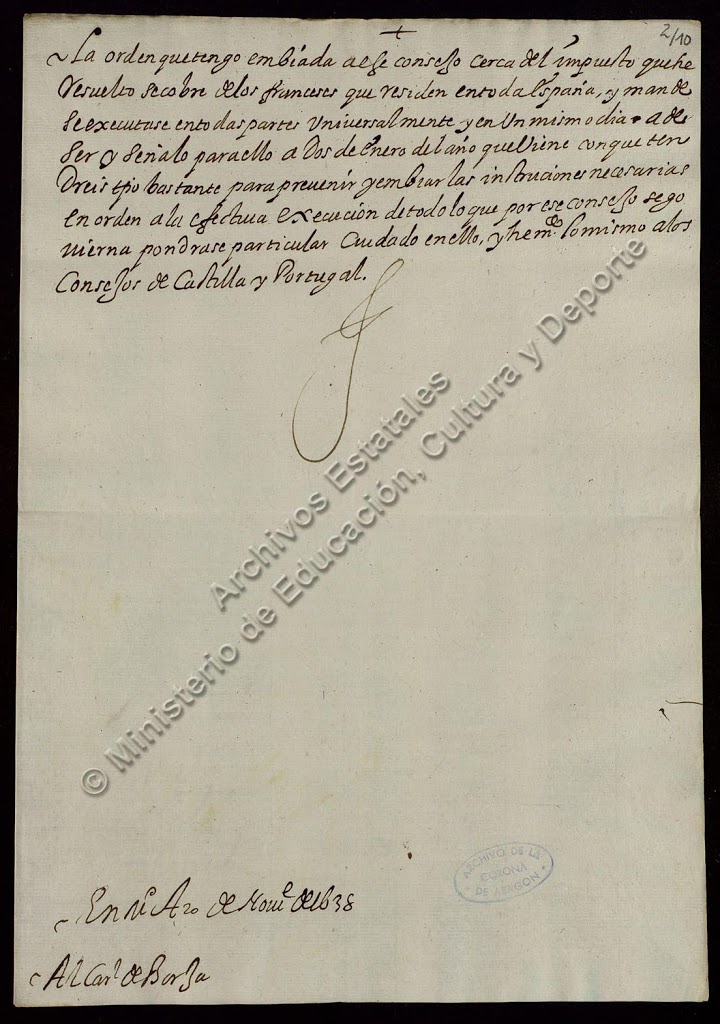 2/10
+
La orden que tengo embiada a ese consejo cerca del impuesto que he
resuelto se cobre de los franceses que residen en toda España, y mande
se executase en todas partes universalmente y en un mismo dia a de
ser y señalo para ello a Dos de Enero del año que viene con que ten
dreis tpo bastante para prevenir y embiar las instruciones necesarias
en orden a la efectiva execucion de todo lo que por ese consejo se go
vierna pondrase particular Cuidado en ello, y he mdo lo mismo a los
Consejos de Castilla y Portugal.
© Ministerio de Educación, Cultura y Deporte
Archivos Estatales
ARCHIVO DE LA
CORONA
DE ARAGON
En de Nove de 1638
Al Carl de Borja